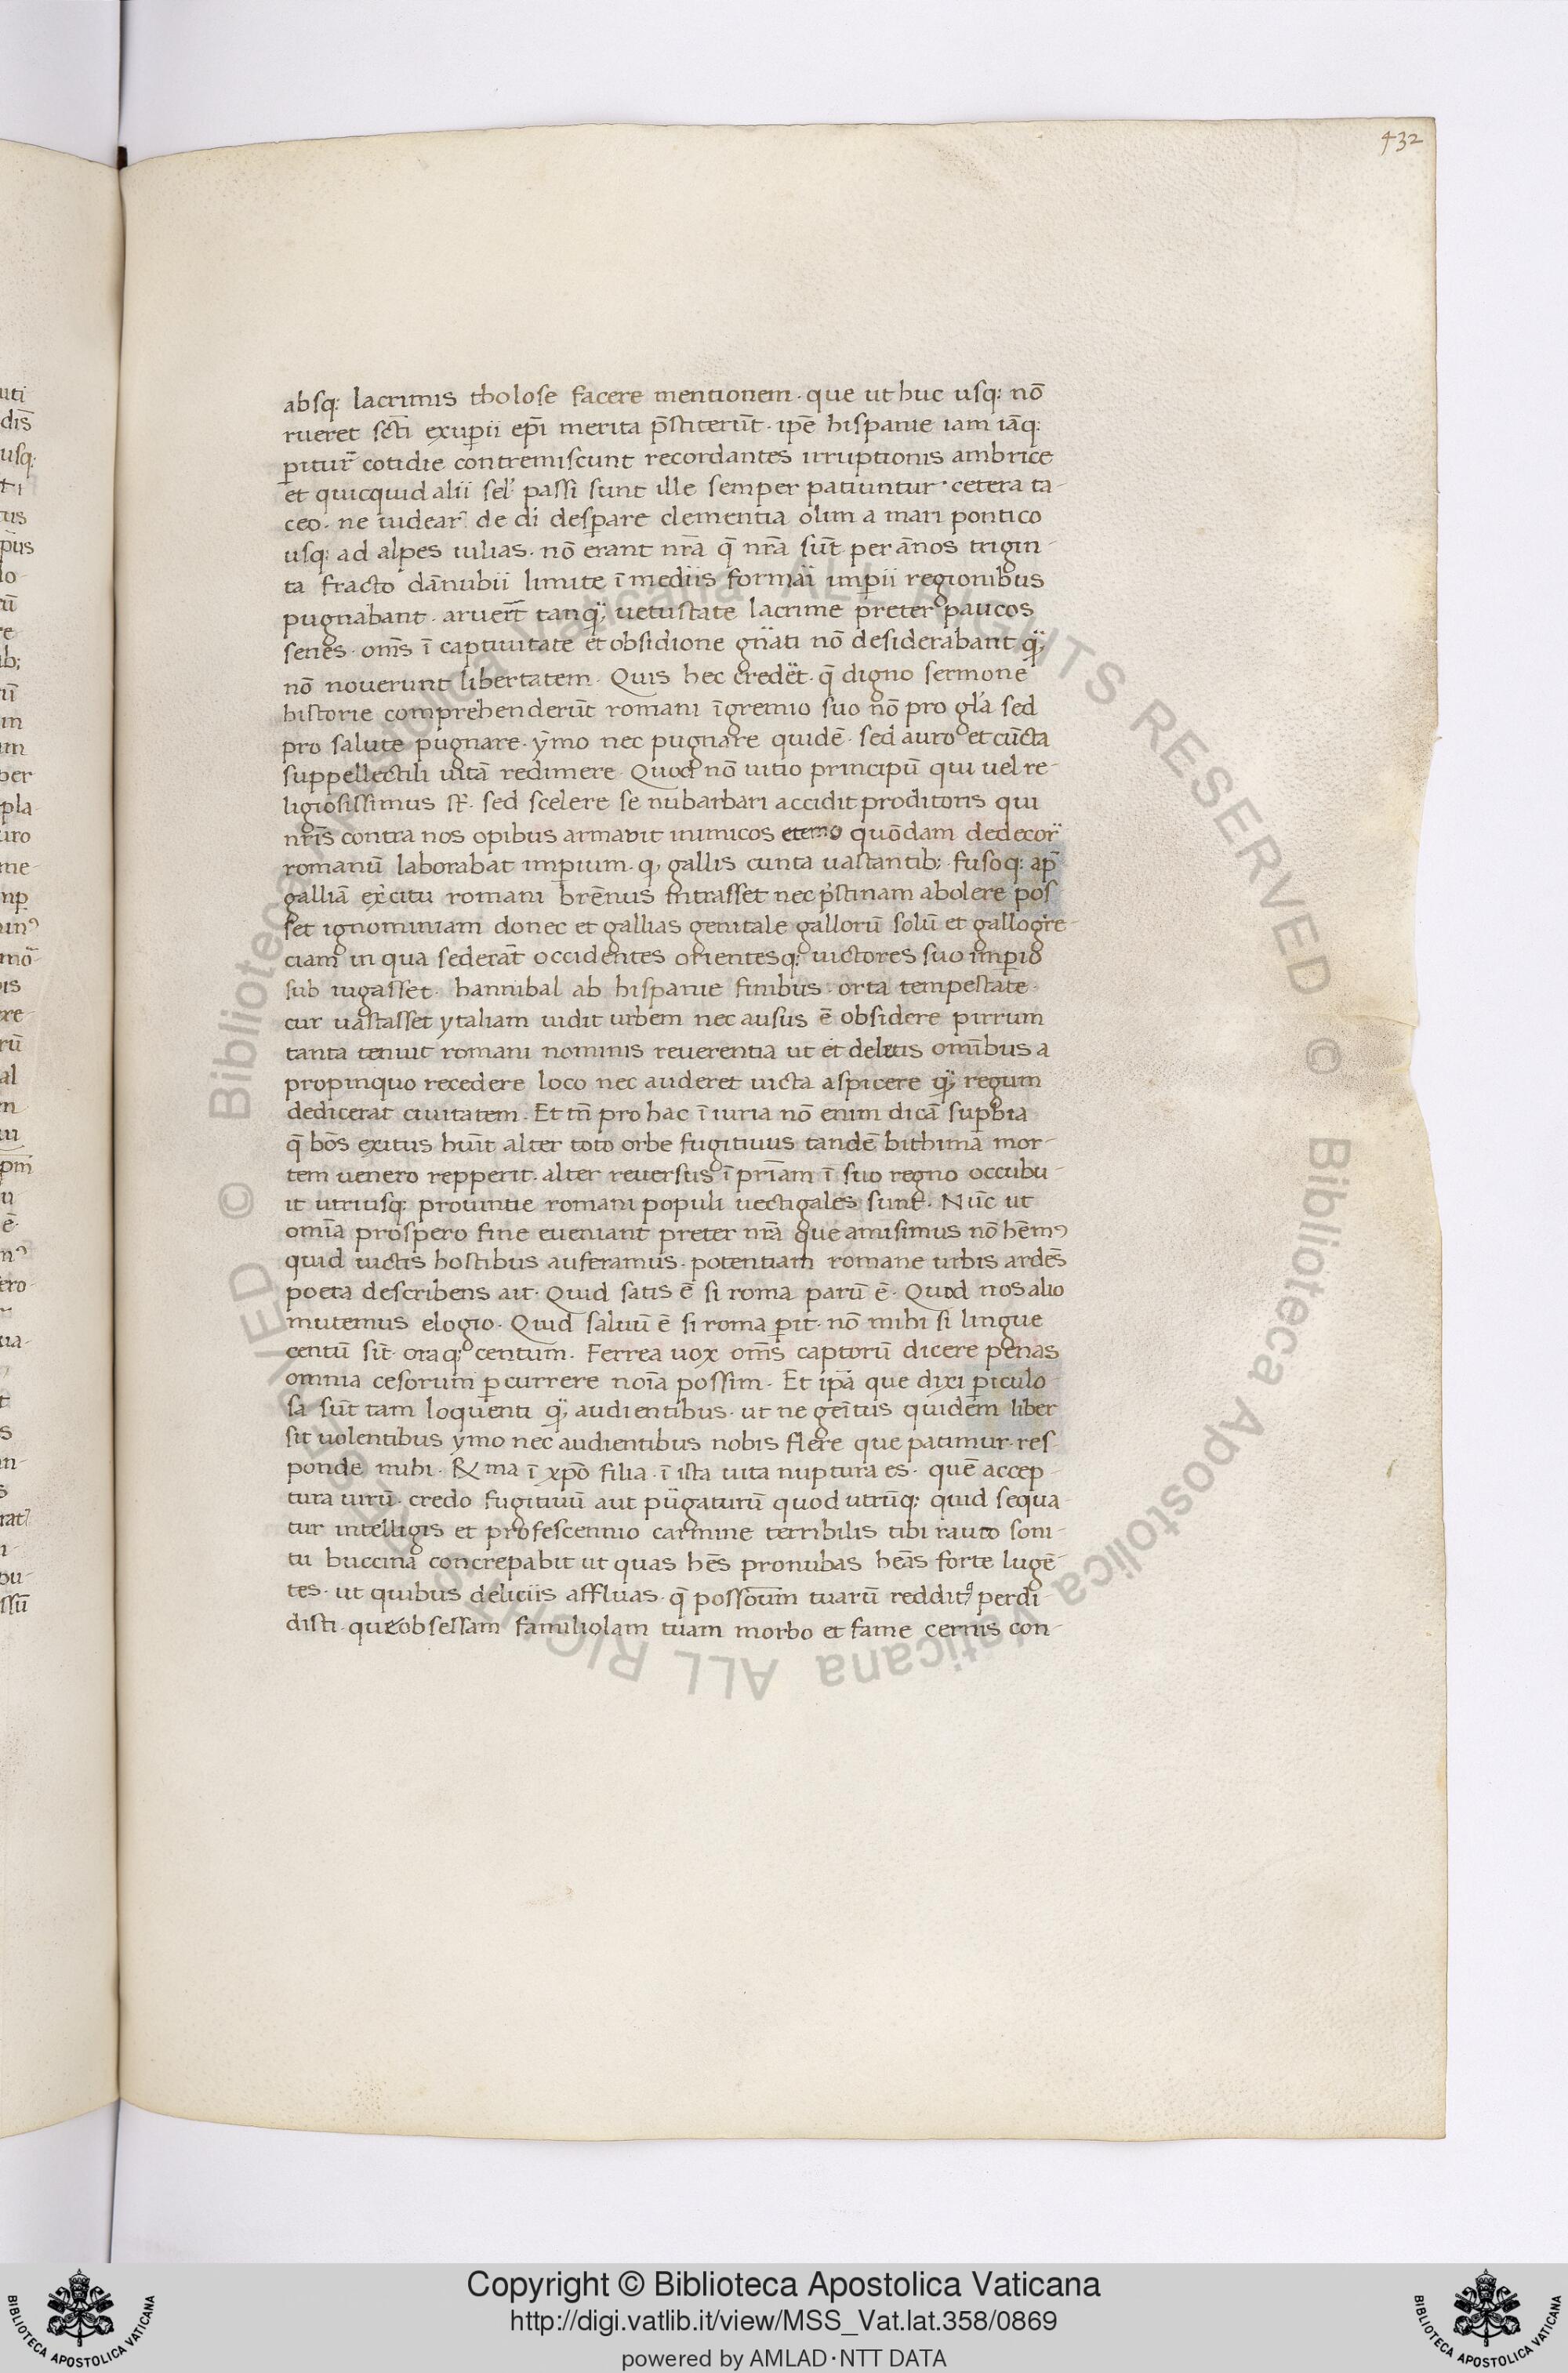 432
absq: lacrimis tholose facere mentionem. que ut huc usq: nō
rueret sc̄ti exuperii ep̄i merita p̄stiterūt. ip̄e hispanie iam iāq:
ꝑitur̄ cotidie contremiscunt recordantes irruptionis ambrice
et quicquid alii sel' passi sunt ille semper patiuntur. cetera ta-
ceo. ne uidear de di desꝑare clementia olim a mari pontico
usq: ad alpes iulias. nō erant nr̄a q̄ nr̄a sūt. per ānos trigin-
ta fracto dānubii limite ī mediis romāi imꝑii regionibus
pugnabant. aruer̄t tanq̄; uetustate lacrime preter paucos
senes. om̄s ī captiuitate et obsidione gn̄ati nō desiderabant q̄;
nō nouerunt libertatem. Quis hec credēt. q̄ digno sermone
historie comprehenderūt romani ī gremio suo nō pro gl'a sed
pro salute pugnare. ẏmo nec pugnare quidē. sed auro et cūcta
suppellectili uitā redimere. Quod nō uitio principū qui uel re-
ligiosissimus st̄. sed scelere se nubarbari accidit proditoris qui
nr̄is contra nos opibus armauit inimicos eterno quōdam dedecor̄
romanū laborabat imꝑium. q, gallis cunta uastantib; fusoq: ap̄
galliā ex̄citu romani brēnus intrasset nec p̄stinam abolere pos
set ignominiam donec et gallias genitale gallorū solū et gallogre-
ciam in qua sederāt occidentes orientesq: uictores suo imꝑio
sub iugasset. hannibal ab hispanie finibus. orta tempestate.
cur uastasset ytaliam uidit urbem nec ausus ē obsidere pirrum
tanta tenuit romani nominis reuerentia ut et deletis omībus a
propinquo recedere loco nec auderet uicta aspicere q̄; regum
dedicerat ciuitatem. Et tn̄ pro hac ī iuria nō enim dicā supbia
q̄ bōs exitus huīt alter toto orbe fugitiuus tandē bithimā mor-
tem uenero repperit. alter reuersus ī pr̄iam ī suo regno occubu-
it utriusq: prouintie romani populi uectigales sunt. Nūc ut
omīa prospero fine eueniant preter nr̄a que amisimus nō hēmꝰ
quid uictis hostibus auferamus. potentiam romane urbis ardēs
poeta describens ait. Quid satis ē si roma parū ē. Quod nos alio
mutemus elogio. Quid saluū ē si roma ꝑit. nō mihi si lingue
centū sīt. oraq; centum. Ferrea uox om̄s captorū dicere penas
omnia cesorum ꝑcurrere noīa possim. Et ip̄a que dixi ꝑiculo
sa sūt tam loquenti q̄; audientibus. ut ne gemītus quidem liber
sit uolentibus ymo nec audientibus nobis flere que patimur. res
ponde mihi. & ma ī xp̄o filia. ī ista uita nuptura es. quē accep
tura uirū. credo fugitiuū aut pūgaturū quod utrūq: quid sequa
tur intelligis et profescennio carmine terribilis tibi rauco soni-
tu buccina concrepabit ut quas hēs pronubas hēas forte lugē-
tes. ut quibus deliciis affluas. q̄ possōum tuarū redditꝰ perdi
disti. que obsessam familiolam tuam morbo et fame cernis con-
Copyright © Biblioteca Apostolica Vaticana
http://digi.vatlib.it/view/MSS_Vat.lat.358/0869
powered by AMLAD·NTT DATA